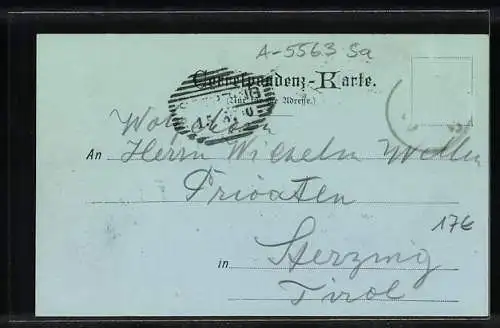 A-5563 Sa
Correspondenz-Karte.
(Nur für die Adresse.)
An Herrn Wilhelm
Privaten
17€
in Sterzing
Tirol